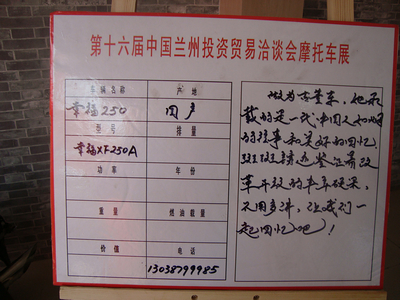 第十六届中国兰州投资贸易洽谈会摩托车展
车辆名称 产地
幸福250 国产
型号 排量
幸福XF250A
功率 年份
重量 燃油载量
价值 电话
13038799985
做为古董车，她承
载的是一代中国人如烟
的往事和美好的回忆，
斑斑锈迹鉴证着改
革开放的丰年硕果，
不用多讲，让我们一
起回忆吧！